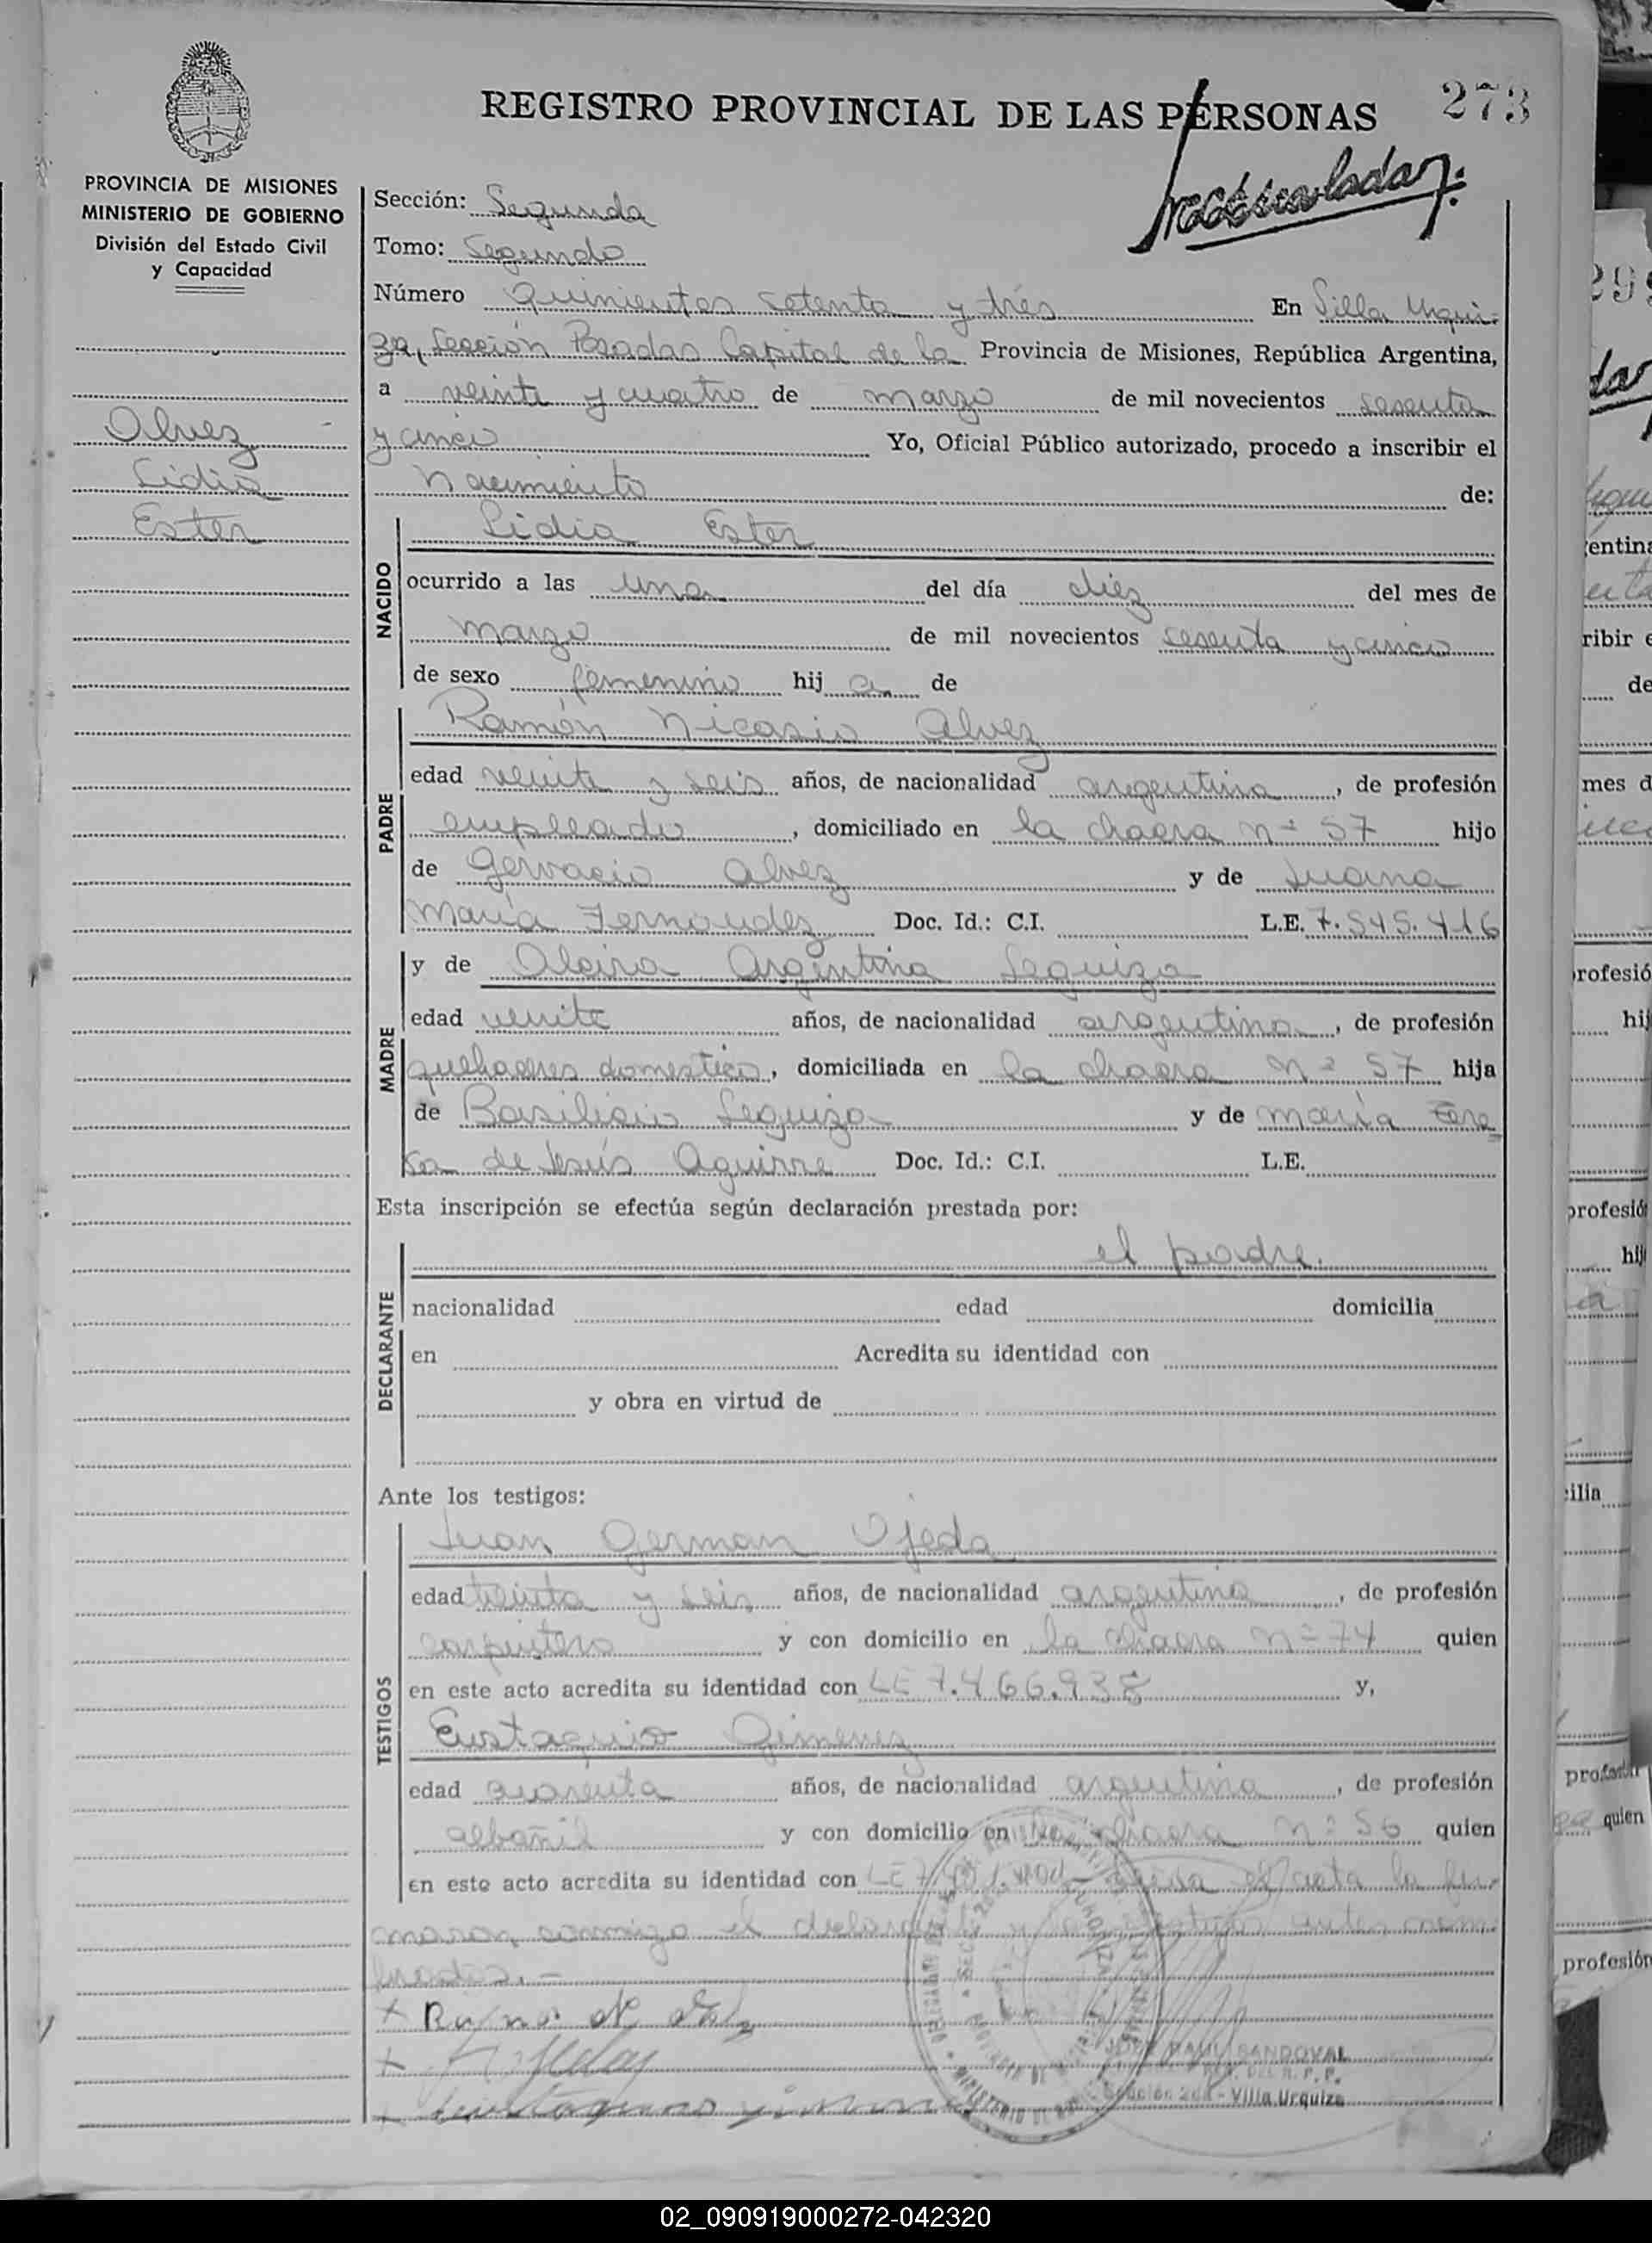 REGISTRO PROVINCIAL DE LAS PERSONAS 273
PROVINCIA DE MISIONES
MINISTERIO DE GOBIERNO
División del Estado Civil
y Capacidad
Alvez
Lidia
Ester
Sección: Segunda
Tomo: Segundo
Número Quinientos setenta y tres En Villa Urqui-
za, Sección Posadas Capital de la Provincia de Misiones, República Argentina,
a veinte y cuatro de marzo de mil novecientos sesenta
y cinco Yo, Oficial Público autorizado, procedo a inscribir el
Nacimiento de:
NACIDO
Lidia Ester
ocurrido a las una del día diez del mes de
marzo de mil novecientos sesenta y cinco
de sexo femenino hij a de
PADRE
Ramón Nicasio Alvez
edad veinte y seis años, de nacionalidad argentina, de profesión
empleado, domiciliado en la chacra nº 57 hijo
de Gervacio Alvez y de Juana
María Fernandez Doc. Id.: C.I. L.E. 7.545.416
MADRE
y de Alcira Argentina Leguiza
edad veinte años, de nacionalidad argentina, de profesión
quehaceres domestico, domiciliada en la chacra nº 57 hija
de Basilicio Leguiza y de María Tere
sa de Jesús Aguirre Doc. Id.: C.I. L.E.
Esta inscripción se efectúa según declaración prestada por:
DECLARANTE
el padre.
nacionalidad edad domicilia
en Acredita su identidad con
y obra en virtud de
Ante los testigos:
TESTIGOS
Juan German Ojeda
edad treinta y seis años, de nacionalidad argentina, de profesión
carpintero y con domicilio en la chacra nº 74 quien
en este acto acredita su identidad con LE 7.466.938 y,
Eustaquio Gimenez
edad cuarenta años, de nacionalidad argentina, de profesión
albañil y con domicilio en la chacra nº 56 quien
en este acto acredita su identidad con LE leida el acta la fir
maron conmigo el declarante y los testigos antes nom
brados.-
JOSE RAUL SANDOVAL
Sección 2da - Villa Urquiza
02_090919000272-042320